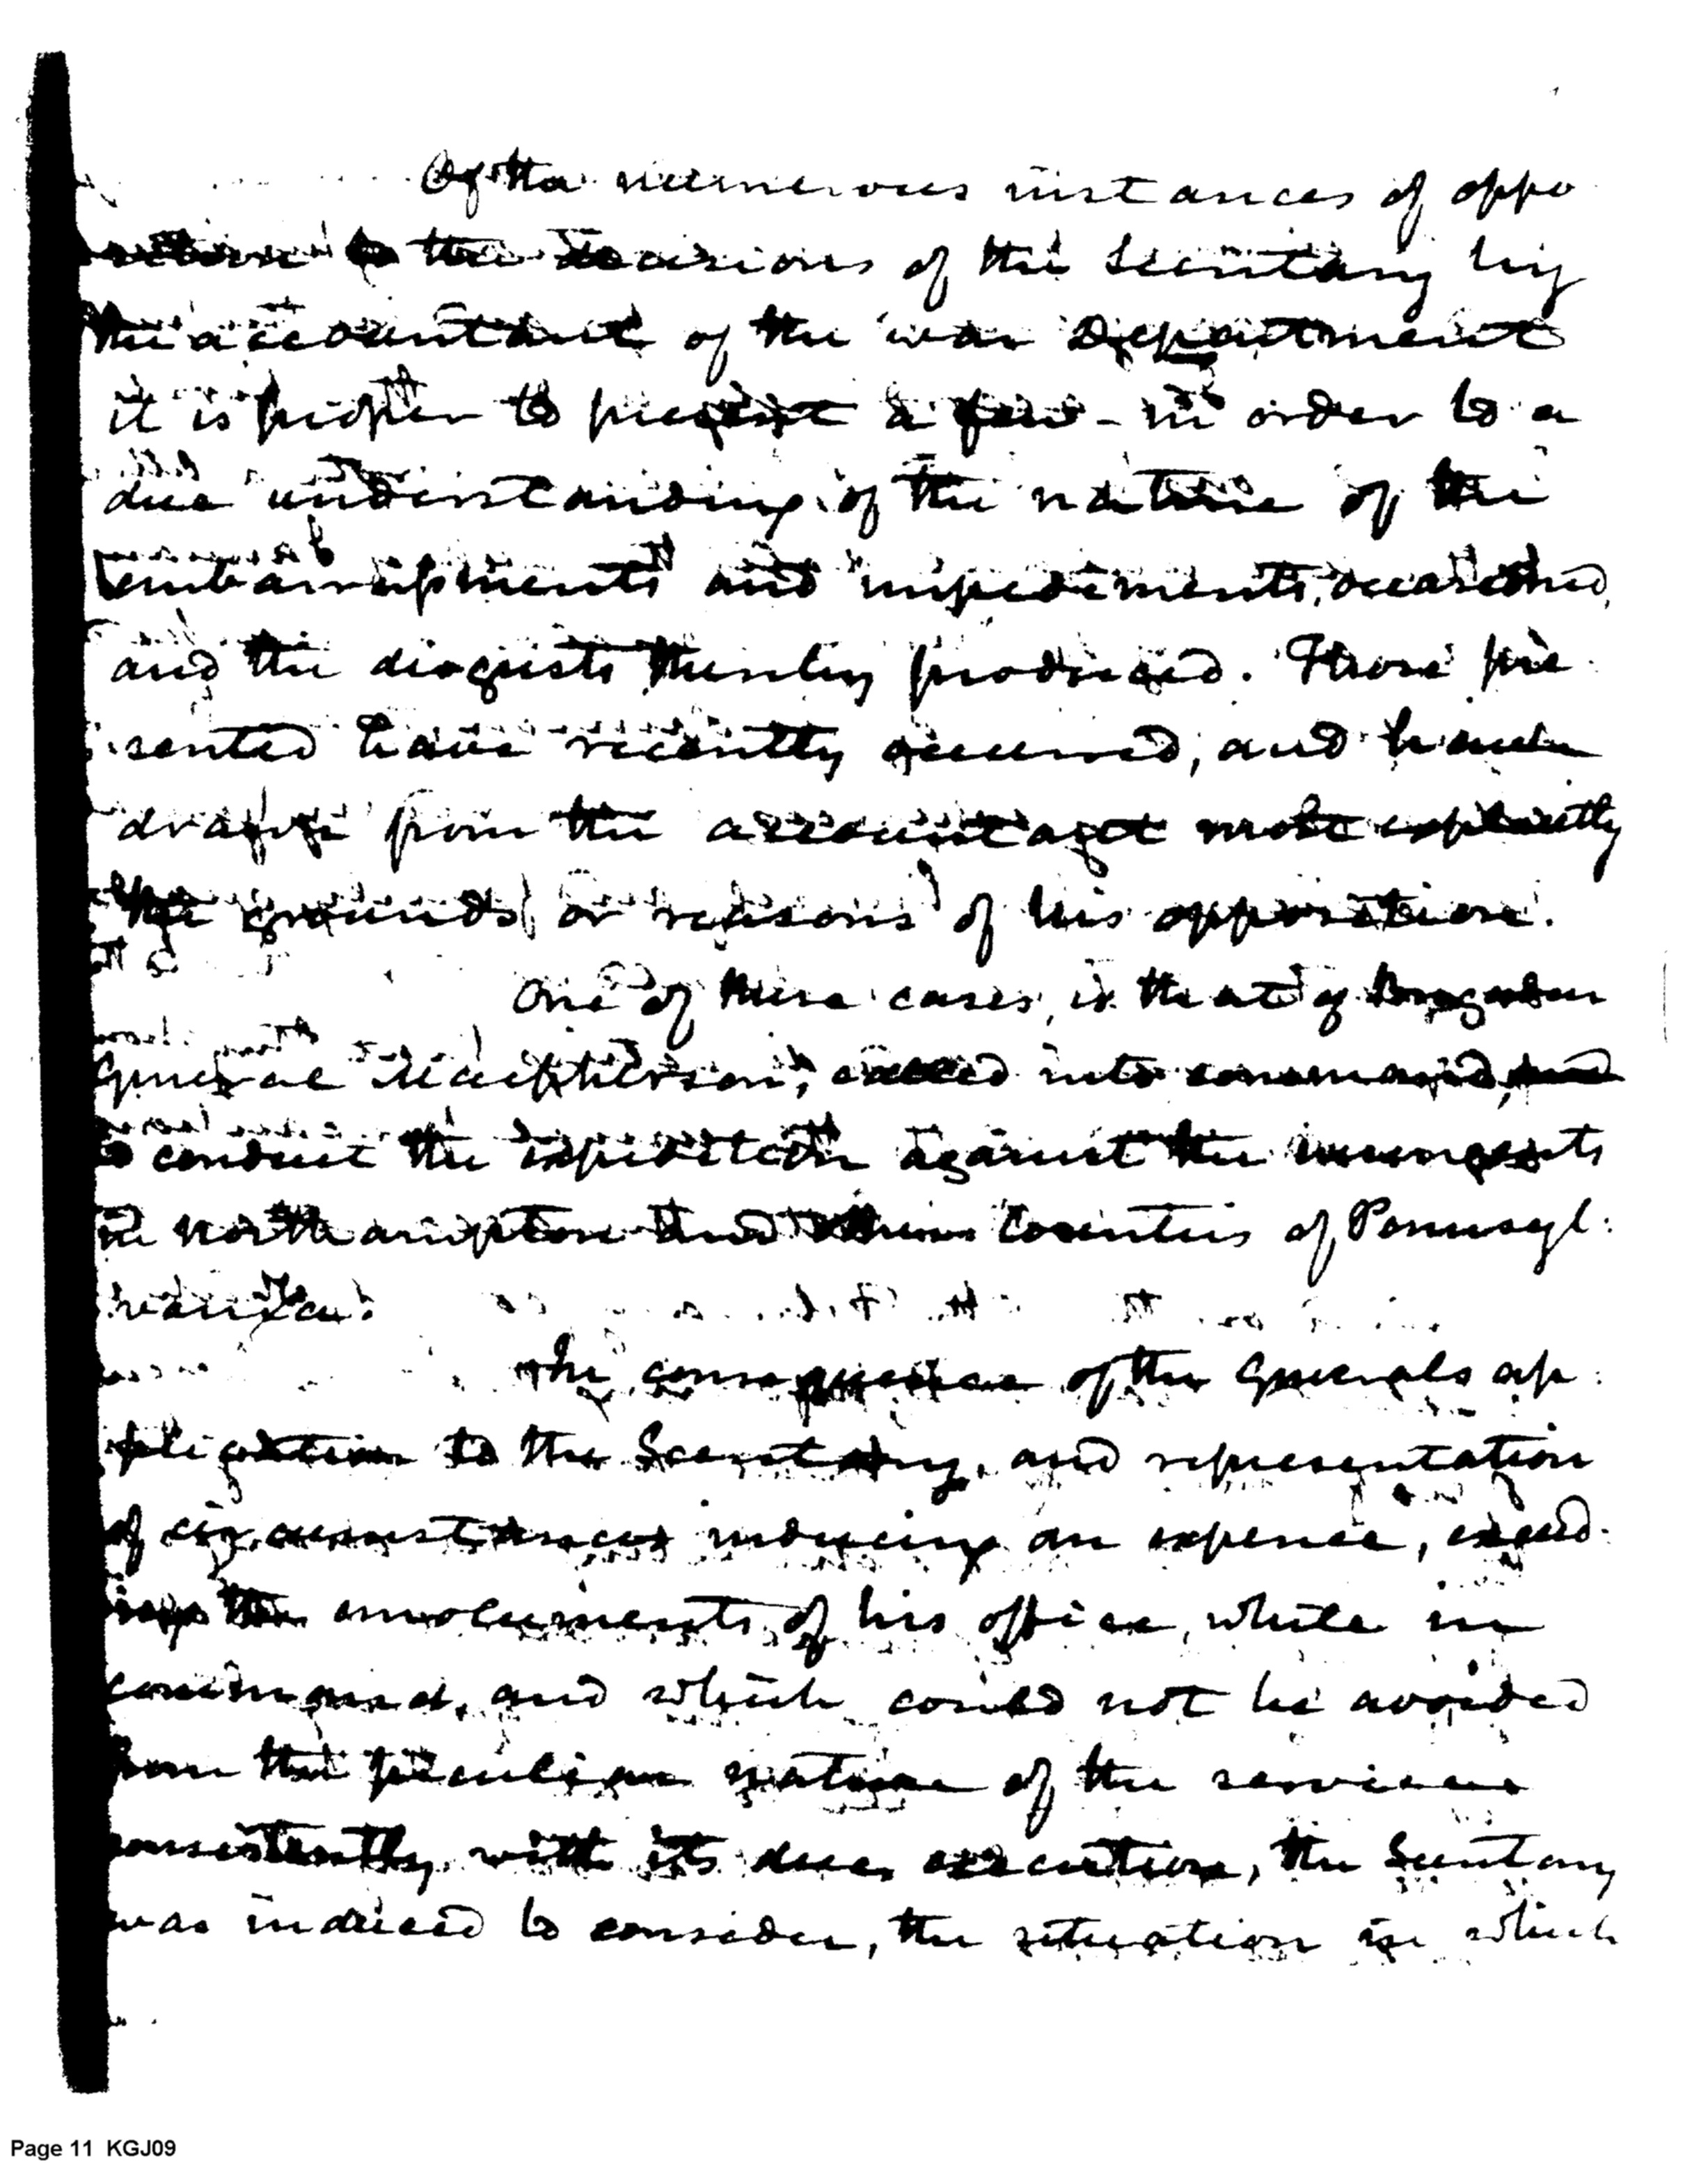 Of the numerous instances of oppo
sition to the decisions of the Secretary by
the accountant of the war Department
it is proper to present a few - in order to a
due understanding of the nature of the
embarrassments and impediments, occasioned,
and the disgusts thereby produced. Those pre
sented have recently occurred, and have
drawn from the accountant most explicitly
the grounds or reasons of his opposition.
One of these cases, is that of Brigadier
General Macpherson, called into command,
to conduct the expedition against the insurgents
in Northampton and other Counties of Pennsyl:
vania.
The consequence of the Generals ap:
plication to the Secretary, and representation
of circumstances inducing an expence, exceed:
ing the emoluments of his office, while in
command, and which could not be avoided
from the peculiar nature of the service
consistently with its due execution, the Secretary
was induced to consider, the situation in which
Page 11 KGJ09